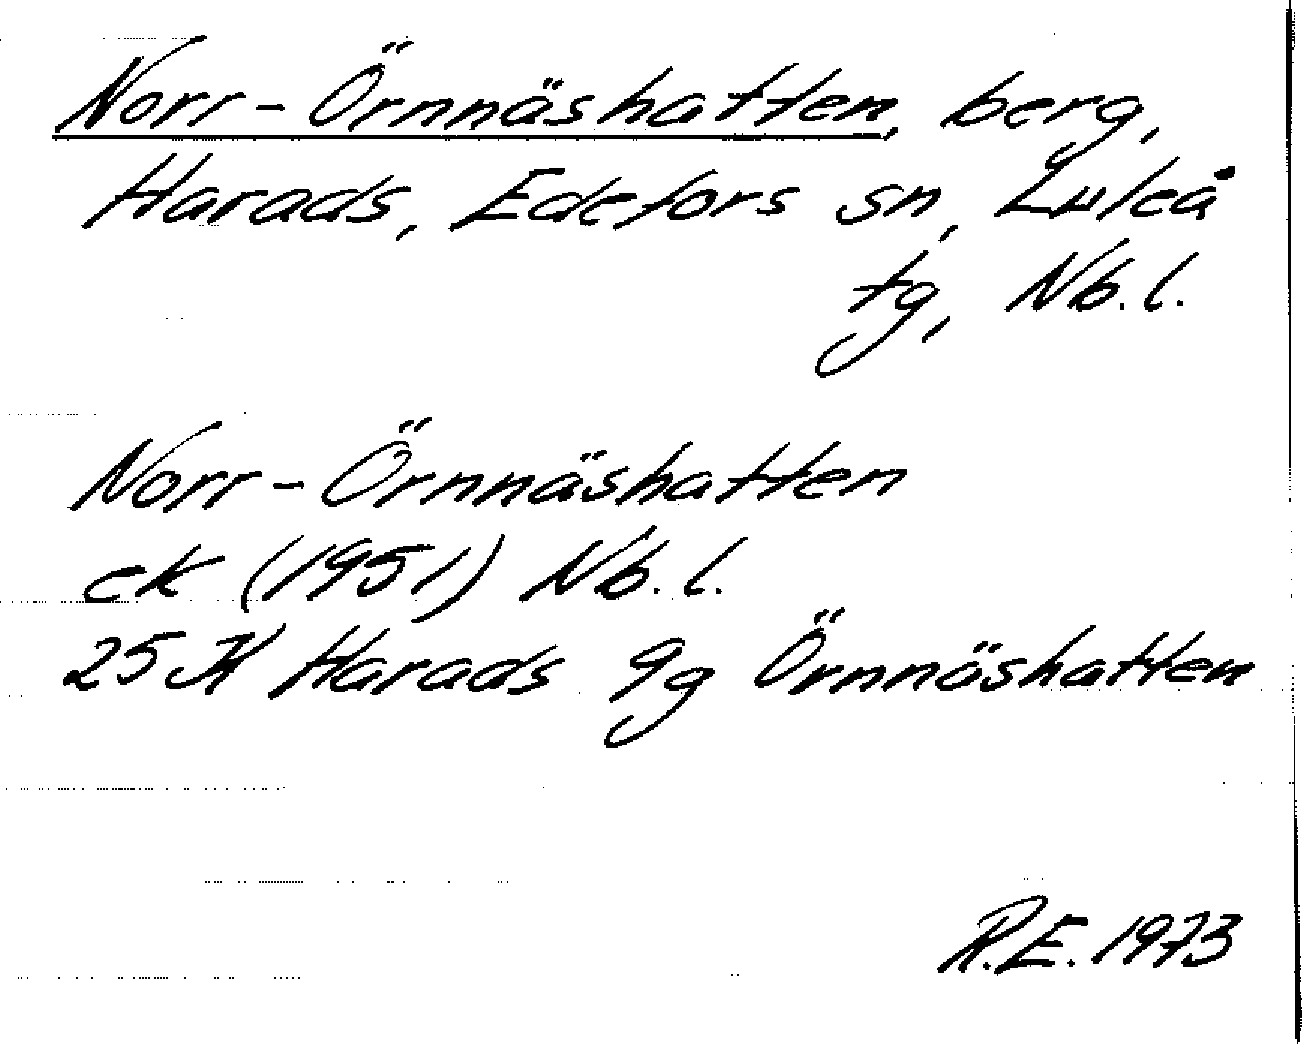 Norr-Örnnäshatten, berg,
Harads, Edefors sn, Luleå
tg, Nb.l.
Norr-Örnnäshatten
ek (1951) Nb.l.
25 K Harads 9g Örnnäshatten
R.E. 1973